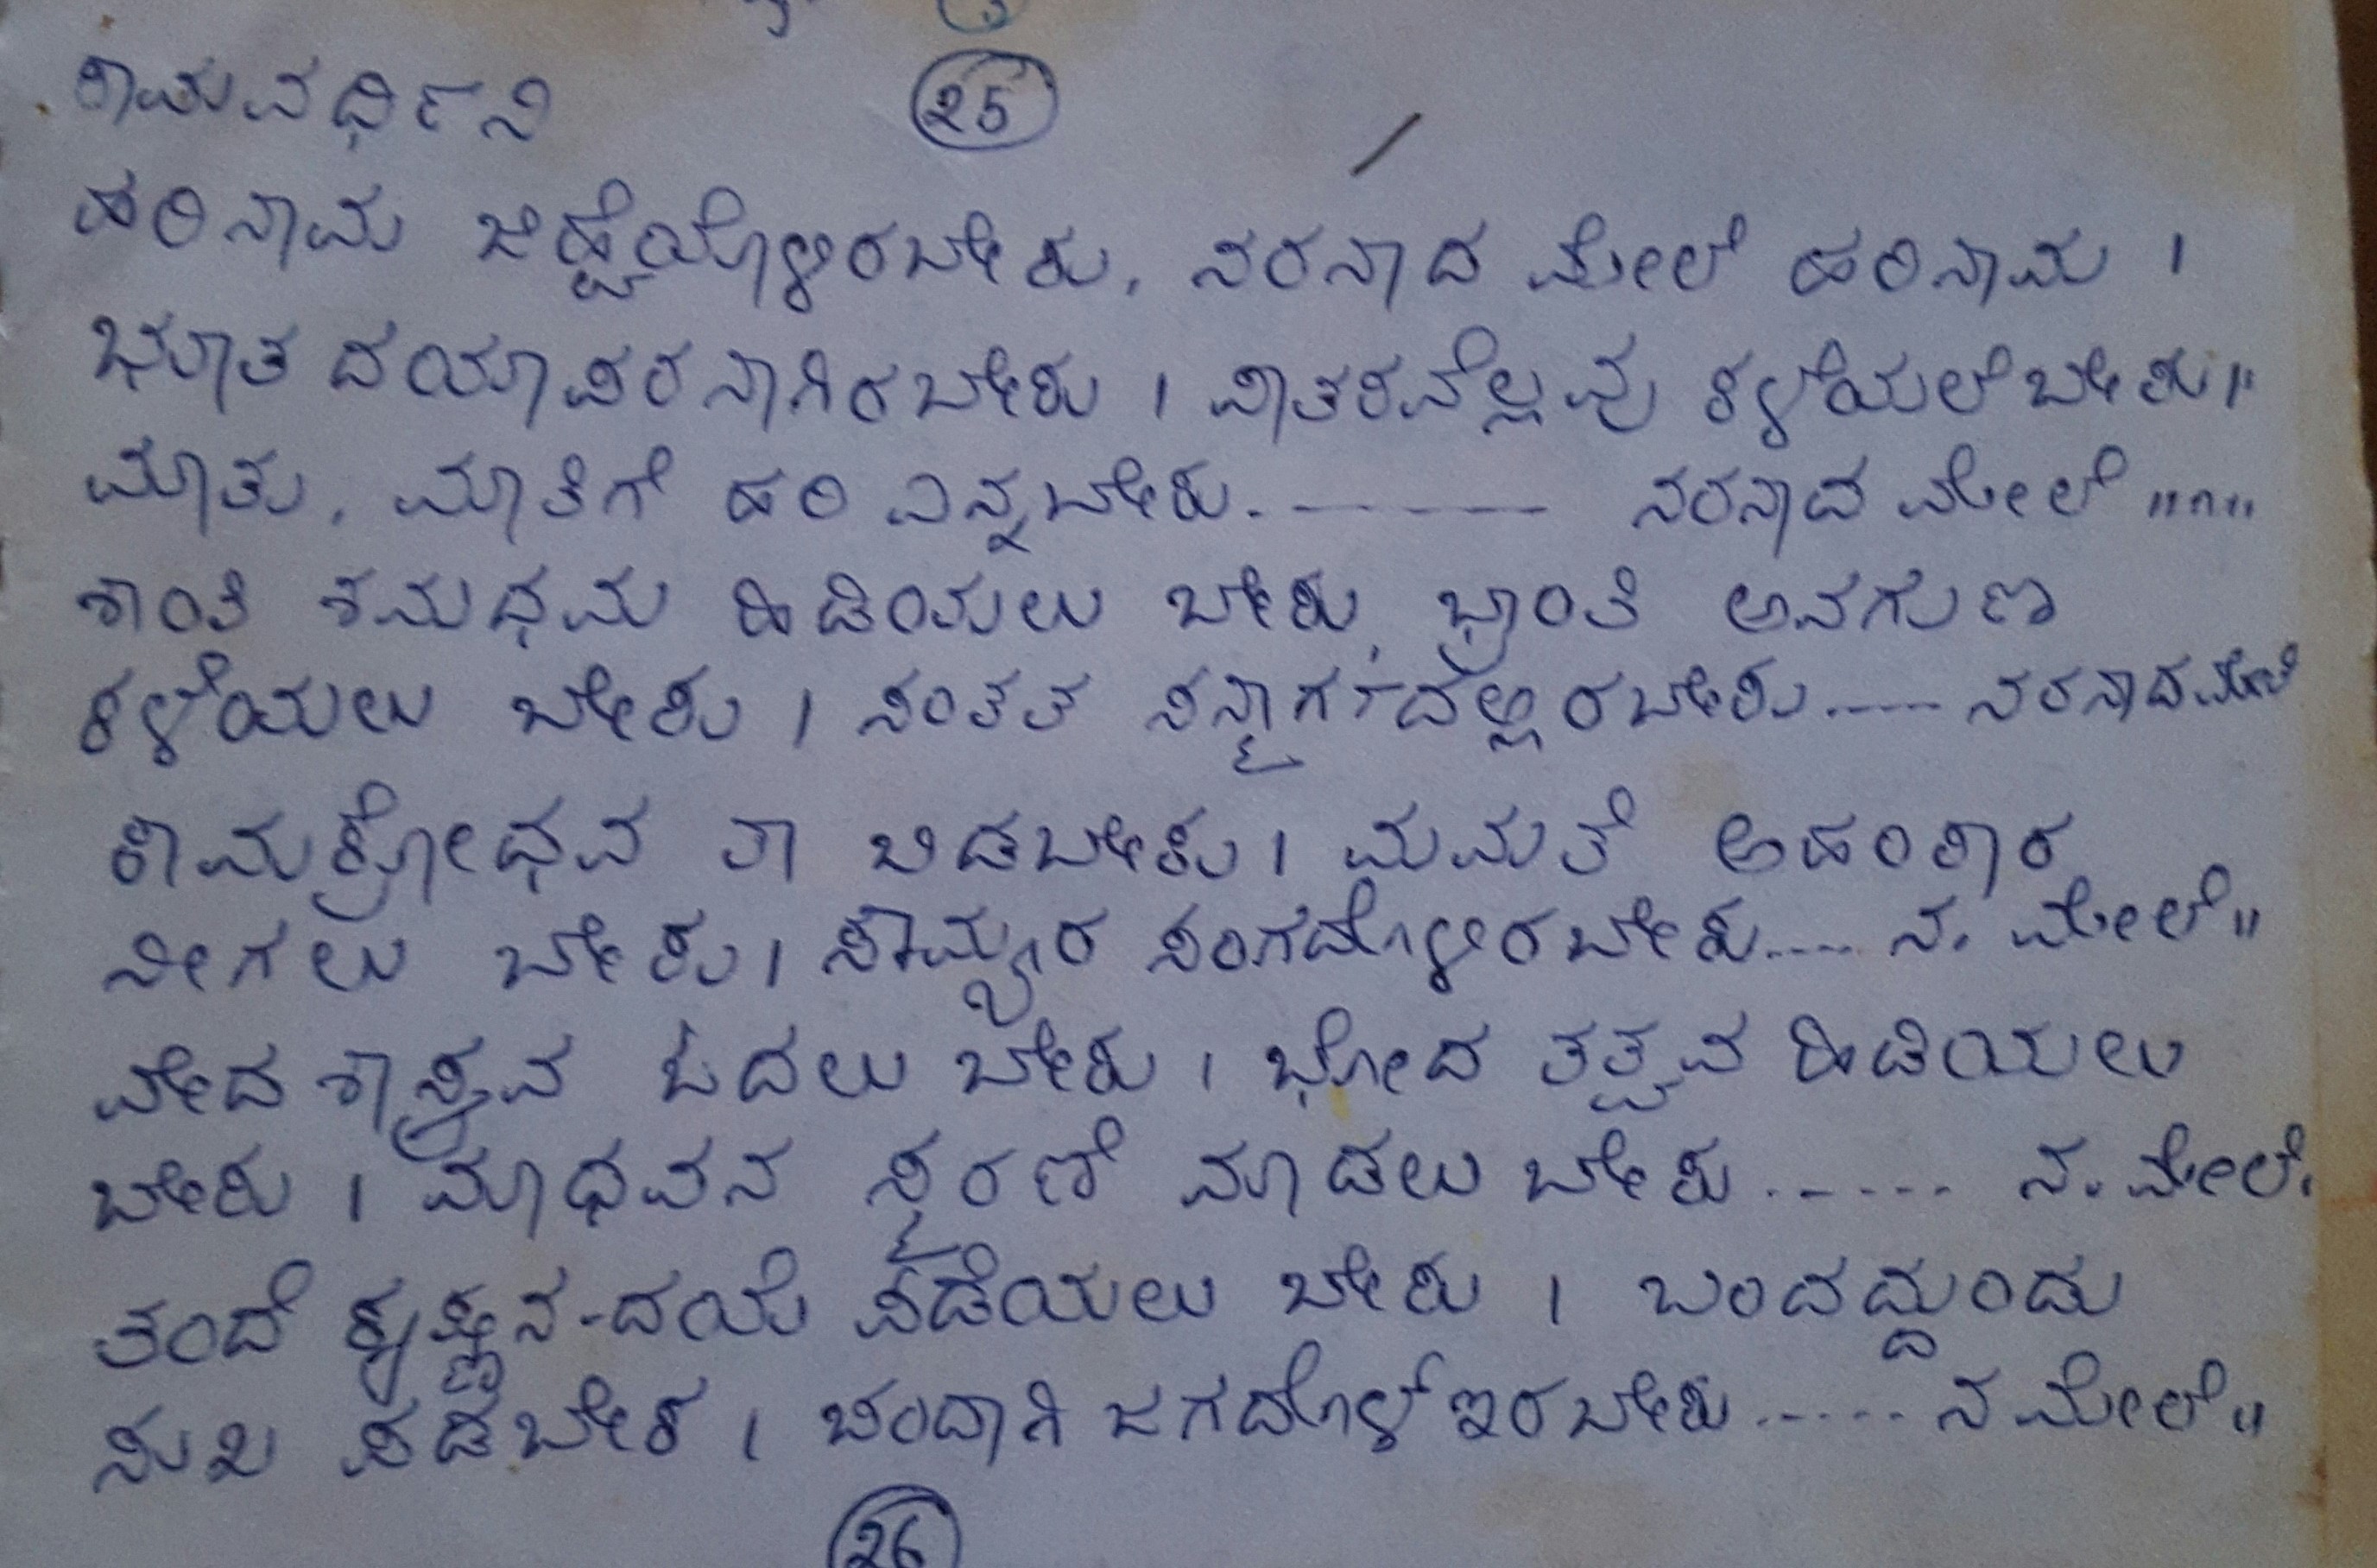 ಕಾಮವರ್ಧಿನಿ
25
ಹರಿನಾಮ ಜಿಹ್ವೆಯೊಳಿರಬೇಕು, ನರನಾದ ಮೇಲೆ ಹರಿನಾಮ ।
ಭೂತ ದಯಾಪರನಾಗಿರಬೇಕು । ಪಾತಕವೆಲ್ಲವು ಕಳೆಯಲೆಬೇಕು॥
ಮಾತು, ಮಾತಿಗೆ ಹರಿ ಎನ್ನಬೇಕು. ------ ನರನಾದ ಮೇಲೆ ""
ಶಾಂತಿ ಶಮಧಮ ಹಿಡಿಯಲು ಬೇಕು, ಭ್ರಾಂತಿ ಅವಗುಣ
ಕಳೆಯಲು ಬೇಕು । ಸಂತತ ಸನ್ಮಾರ್ಗದಲ್ಲಿರಬೇಕು.---- ನರನಾದಮೇಲೆ
ಕಾಮಕ್ರೋಧವ ತಾ ಬಿಡಬೇಕು । ಮಮತೆ ಅಹಂಕಾರ
ನೀಗಲು ಬೇಕು । ಸೌಮ್ಯರ ಸಂಗದೊಳಿರಬೇಕು..... ನ. ಮೇಲೆ॥
ವೇದ ಶಾಸ್ತ್ರವ ಓದಲು ಬೇಕು । ಭೋದ ತತ್ವವ ಹಿಡಿಯಲು
ಬೇಕು । ಮಾಧವನ ಸ್ಮರಣೆ ಮಾಡಲು ಬೇಕು ...... ನ. ಮೇಲೆ.
ತಂದೆ ಕೃಷ್ಣನ-ದಯೆ ಪಡೆಯಲು ಬೇಕು । ಬಂದದ್ದುಂಡು
ಸುಖ ಪಡಬೇಕ । ಚಂದಾಗಿ ಜಗದೊಳ್ ಇರಬೇಕು ...... ನ ಮೇಲೆ॥
26